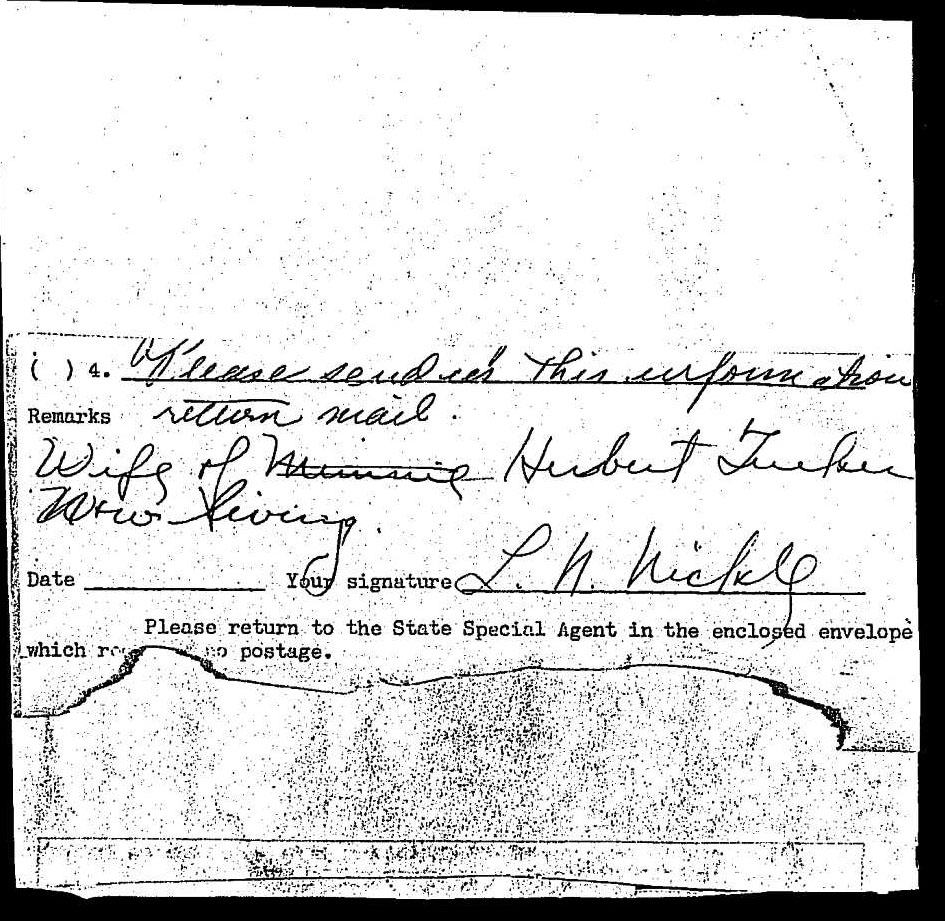 ( ) 4. "Please send us this information
Remarks return mail.
Wife of Minnie Herbert Tucker
Now living.
Date Your signature L. N. Nickly
Please return to the State Special Agent in the enclosed envelope
which no postage.